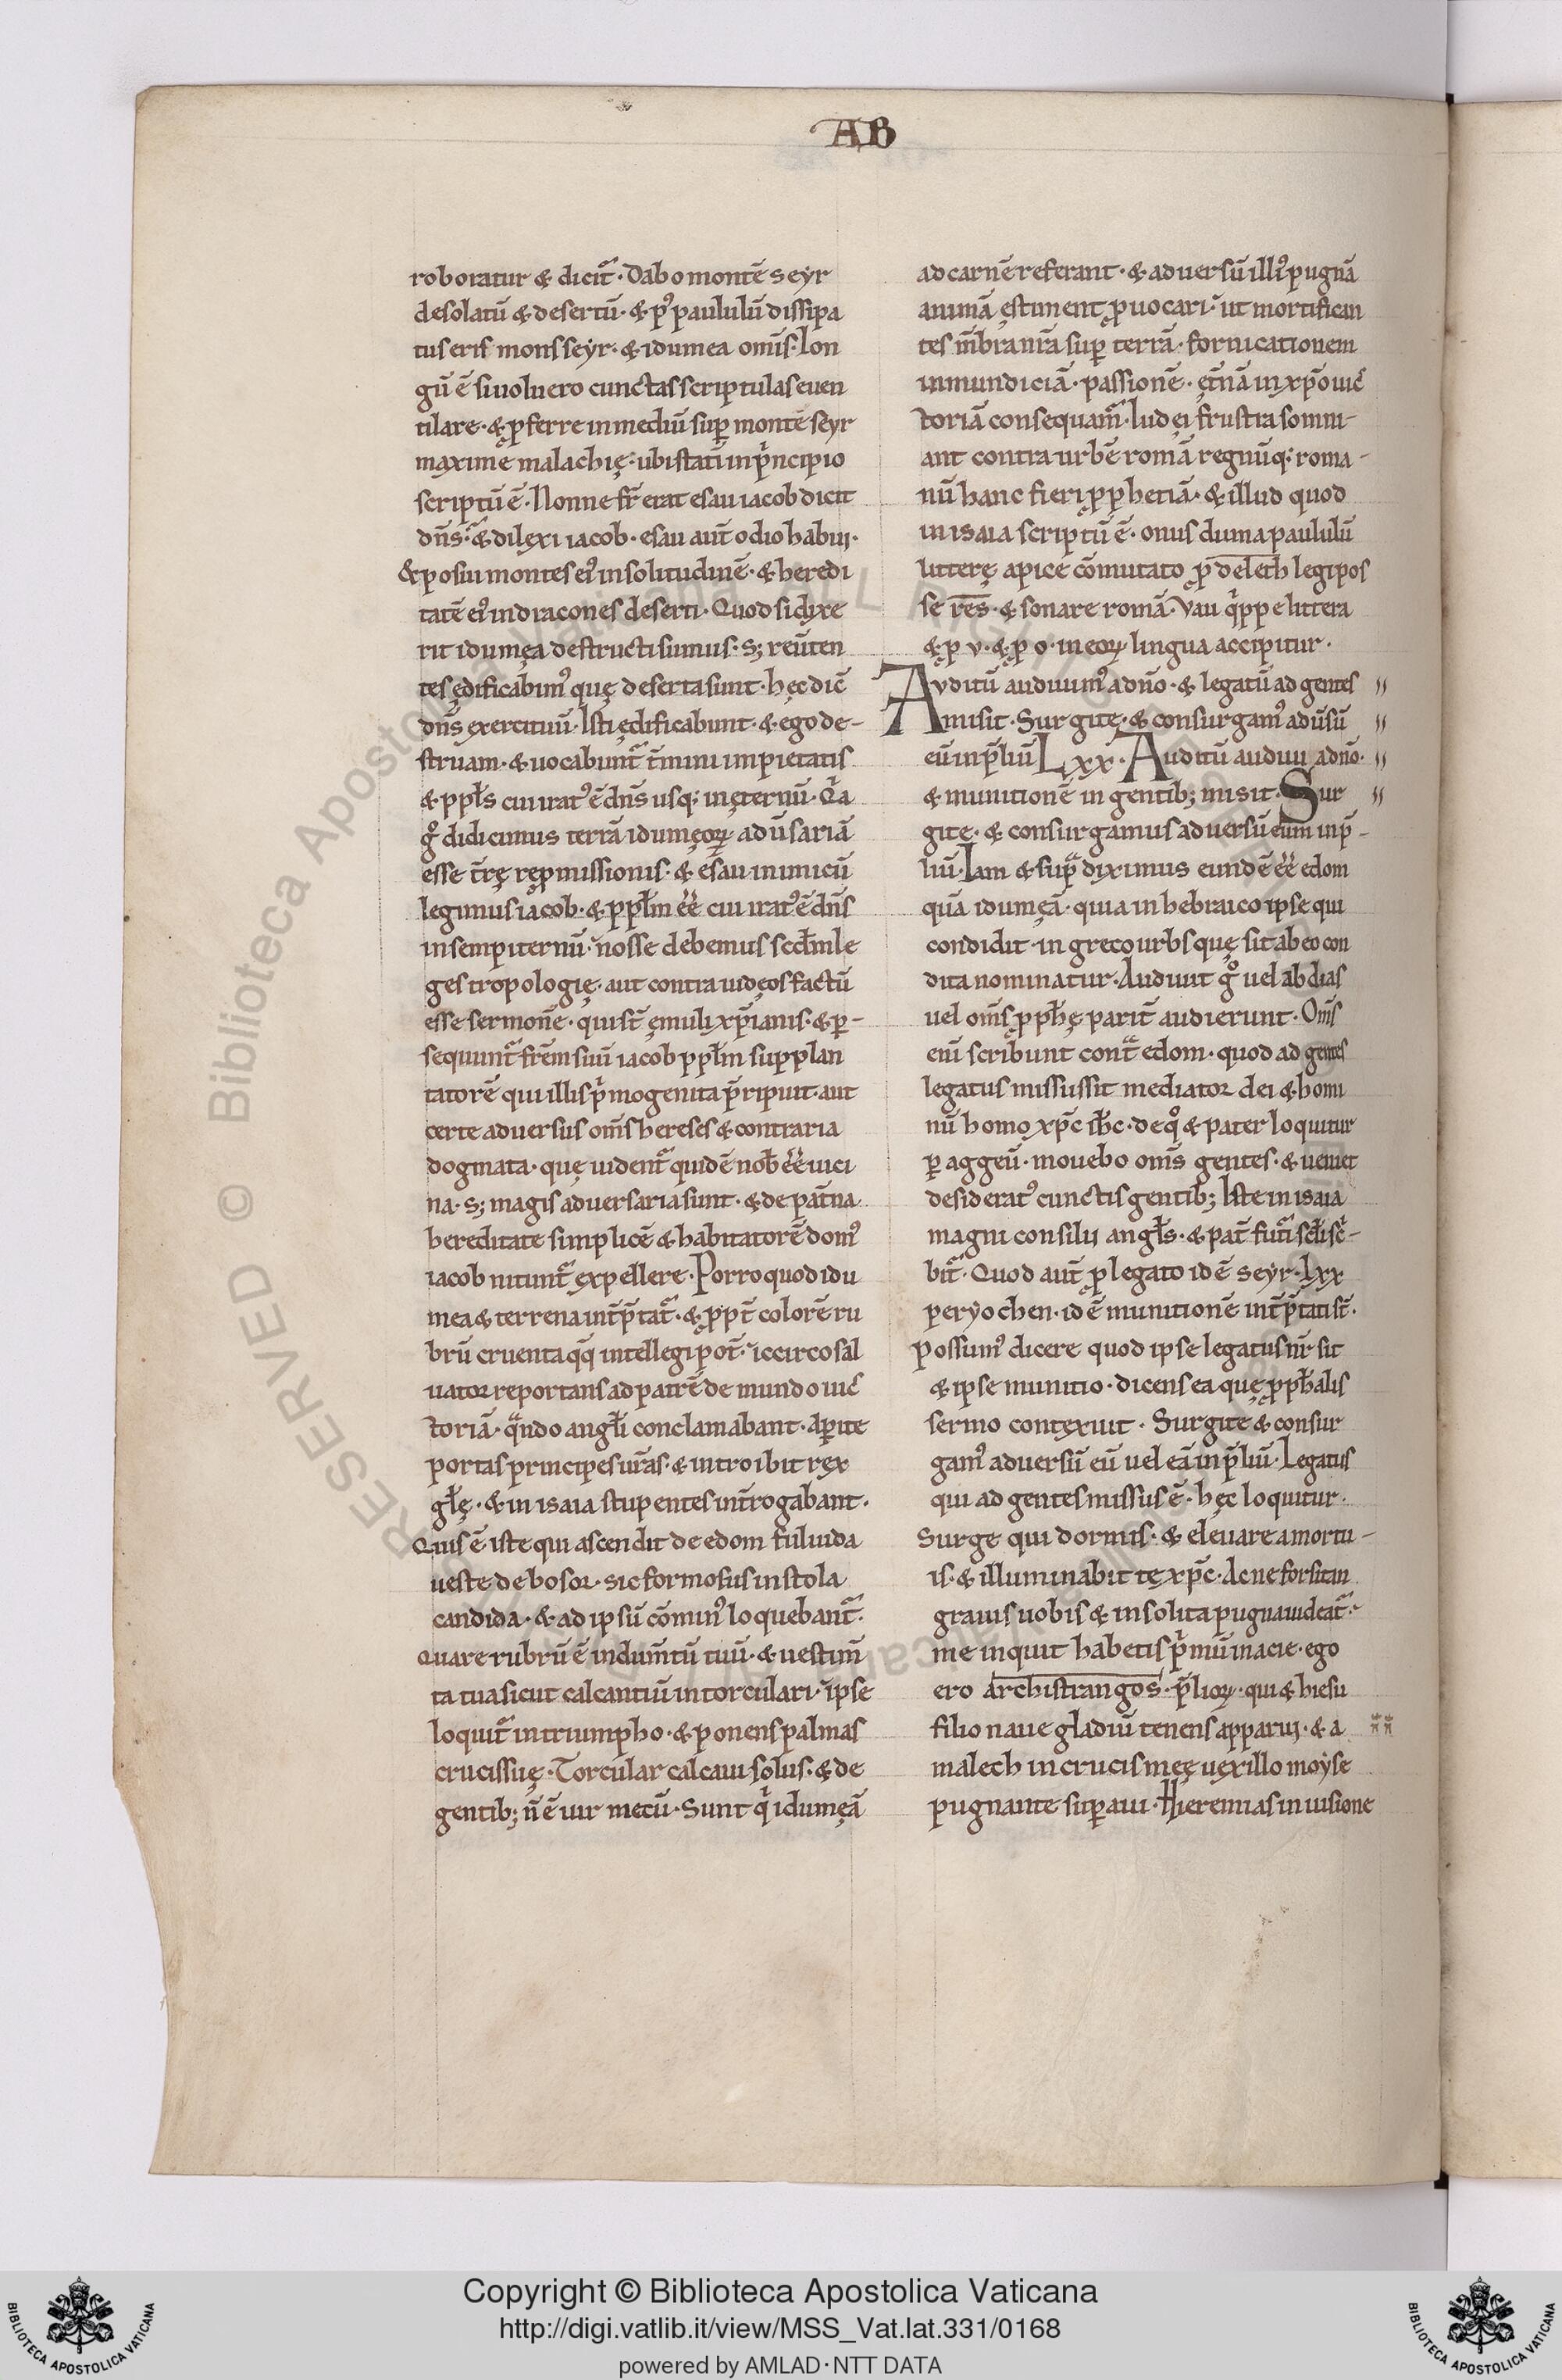 AB
roboratur & dicit᷑. Dabo montē seyr
desolatū & desertū. & pꝰ paululū dissipa
tus eris mons seyr. & idumea om̄is. Lon
gū ē si uoluero cunctas scriptulas euen
tilare. & ꝓferre in mediū suꝑ montē seyr
maxime malachię: ubi statī in pͥncipio
scriptū ē. Nonne fr̄ erat esau iacob dicit
dn̄s. & dilexi iacob. esau aut̄ odio habui.
& posui montes eiꝰ in solitudinē. & heredi
tatē eiꝰ in dracones deserti. Quod si dixe
rit idumęa destructi sumus. s; reuūten
tes ędificabimꝰ quę deserta sunt. hęc dic̄
dn̄s exercituū. Isti ędificabunt. & ego de-
struam. & uocabunt᷑ t̄mini impietatis
& ppl̄s cui iratꝰ ē dn̄s usq; in ęternū. Qͥa
gͦ didicimus terrā idumęoꝝ adūsariā
esse t̄rę repmissionis. & esau inimicū
legimus iacob. & ppl̄m ēē cui iratꝰ ē dn̄s
in sempiternū. nosse debemus scd̄m le
ges tropologię. aut contra iudęos factū
esse sermonē. qui st̄ ęmuli xp̄ianis. & ꝑ-
sequunt᷑ frēm suū iacob ppl̄m supplan
tatorē qui illis pͥmogenita p̄ripuit. aut
certe aduersus om̄s hereses & contraria
dogmata. quę uident᷑ quidē nob̄ ēē uici
na. s; magis aduersaria sunt. & de pat̄na
hereditate simplicē & habitatorē domꝰ
iacob nitunt᷑ expellere. Porro quod idu
mea & terrena int̄p̄tat᷑. & ꝓpt̄ colorē ru
brū cruenta qͣq intellegi pot̄. iccirco sal
uator reportans ad patrē de mundo uic
toriā. qͣndo angl̄i conclamabant. Aꝑite
portas principes ur̄as. & introibit rex
gl̄ę. & in isaia stupentes int̄rogabant.
Quis ē iste qui ascendit de edom fuluida
ueste de bosor. sic formosus in stola
candida. & ad ipsū cōminꝰ loquebant᷑.
Quare rubrū ē indum̄tū tuū. & uestim̄
ta tua sicut calcantiū in torculari. ipse
loquit᷑ in triumpho. & ponens palmas
crucis suę. Torcular calcaui solus. & de
gentib; n̄ ē uir mecū. Sunt qͥ idumęā
ad carnē referant. & aduersū illiꝰ pugnā
animā ęstiment ꝓuocari. ut mortifican
tes m̄bra nr̄a suꝑ terrā. fornicationem
inmundiciā. passionē. ęt̄nā in xp̄o uic
toriā consequam᷑. Iudei frustra somni-
ant contra urbē romā regnūq; roma-
nū hanc fieri ꝓphetiā. & illud quod
in isaia scriptū ē. onus duma paululū
litterę apice cōmutato ꝓ deleth legi pos
se res. & sonare romā. Vau qͥppe littera
& ꝓ v. & ꝓ o. in eoꝝ lingua accipitur.
Avditū audiuimꝰ a dn̄o. & legatū ad gentes
misit. Surgite. & consurgamꝰ adūsū
eū in p̄liū Lxx. Auditū audiui a dn̄o.
& munitionē in gentib; misit. Sur
gite. & consurgamus aduersū eum in p̄-
liū. Iam & supͣ diximus eundē ēē edom
quā idumęā. quia in hebraico ipse qui
condidit. in greco urbs quę sit ab eo con
dita nominatur. Audiuit gͦ uel abdias
uel om̄s ꝓph̄ę parit̄ audierunt. Om̄s
eni scribunt cont͛ edom. quod ad gentes
legatus missus sit mediator dei & homi
nū homo xp̄c ih̄c. de qͦ & pater loquitur
ꝑ aggeū. mouebo om̄s gentes. & ueniet
desideratꝰ cunctis gentib; Iste in isaia
magni consilii angl̄s. & pat̄ futi scl̄i sc̄-
bit᷑. Quod aut̄ ꝓ legato id ē seyr. lxx
peryochen. id ē munitionē int̄p̄tati st̄.
Possumꝰ dicere quod ipse legatus nr̄ sit
& ipse munitio. dicens ea quę ꝓph̄alis
sermo contexuit. Surgite & consur
gamꝰ aduersū eū uel eā in p̄liū. Legatus
qui ad gentes missus ē. hęc loquitur.
Surge qui dormis. & eleuare a mortu-
is. & illuminabit te xp̄c. Ac ne forsitan
grauis uobis & insolita pugna uideat᷑.
me inquit habetis pͥmū in acie. ego
ero archistrangos. p̄lioꝝ. qui & hiesu
filio naue gladiū tenens apparui. & a
malech in crucis meę uexillo moyse
pugnante suꝑaui. Hieremias in uisione